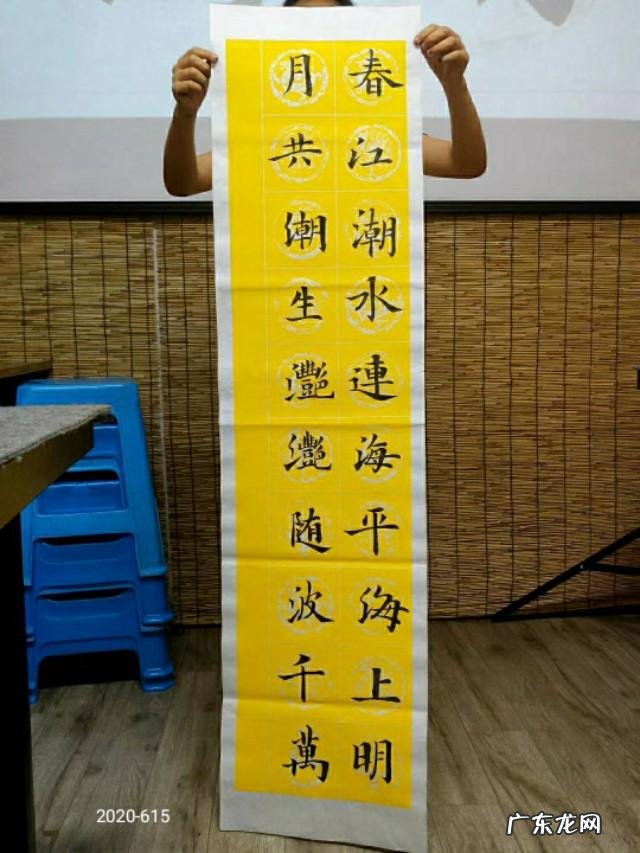 春江潮水連海平海上明
月共潮生灔灔随波千萬
2020-615
广东龙网